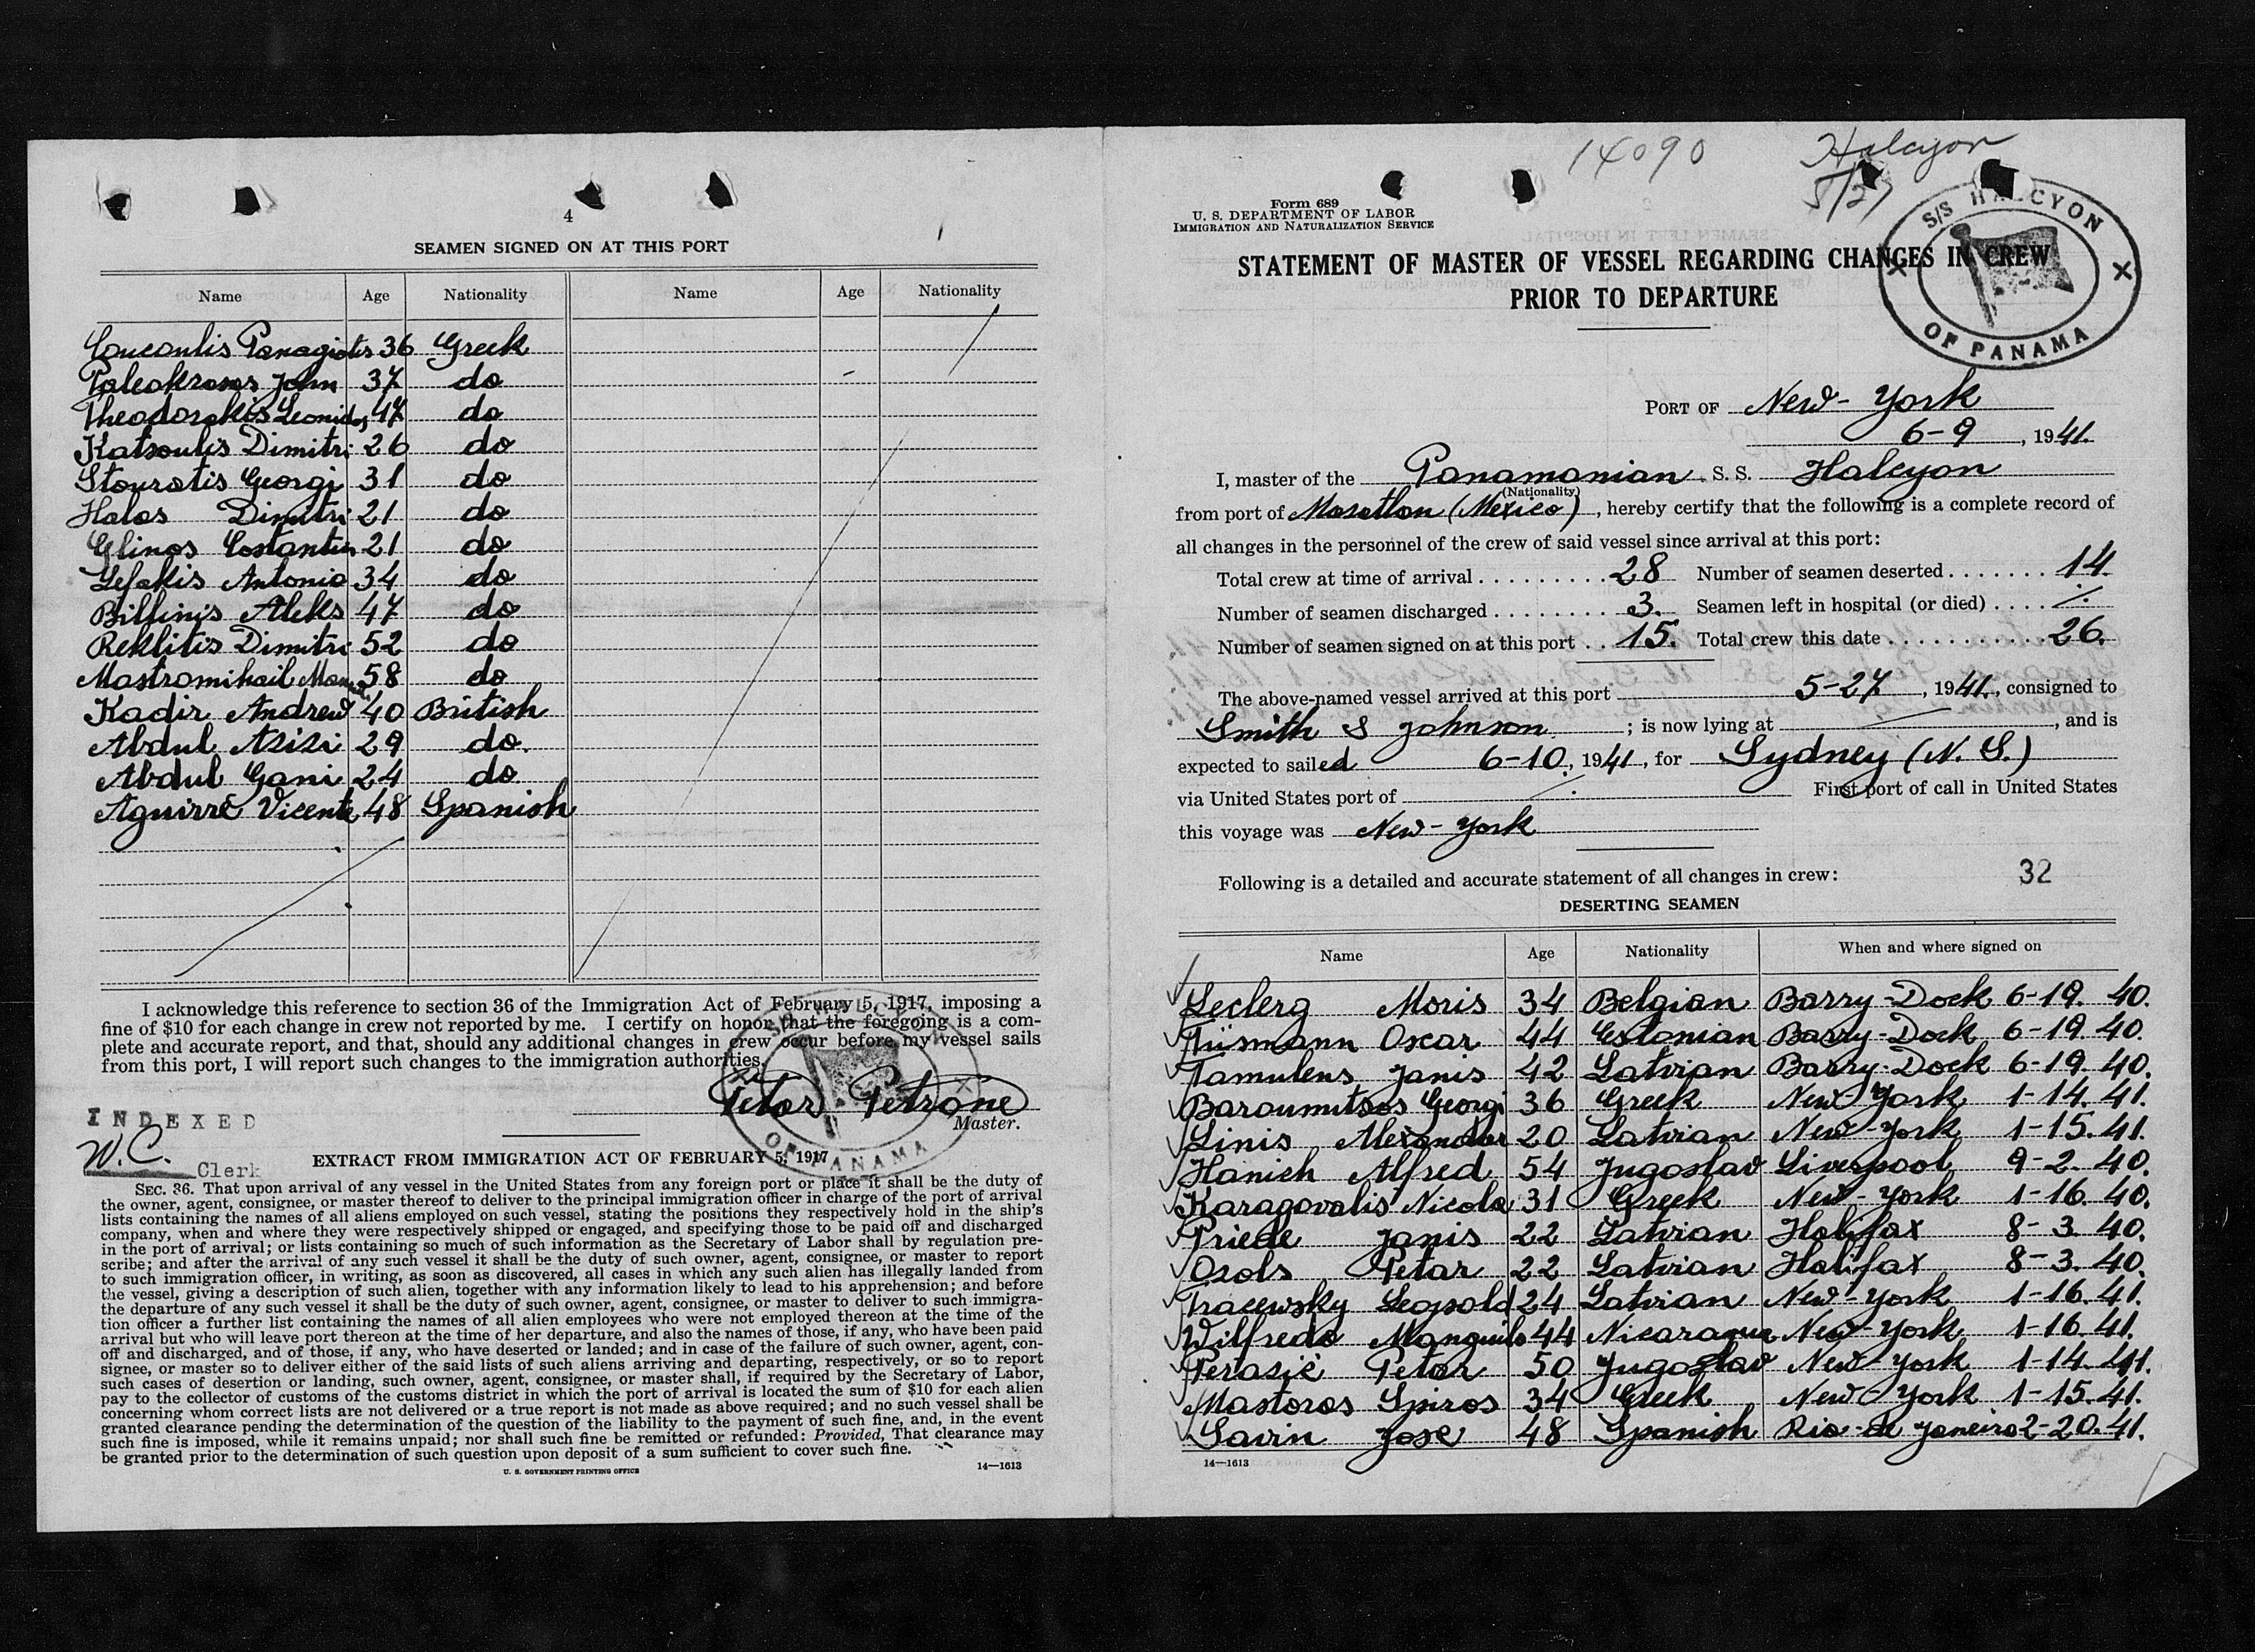 4
SEAMEN SIGNED ON AT THIS PORT
Name Age Nationality Name Age Nationality
Coucoulis Panagiotis 36 Greek
Paleokrasas John 37 do
Theodorakis Leonidas 47 do
Katsoulis Dimitri 26 do
Stouratis Georgi 31 do
Halas Dimitri 21 do
Glinos Costantin 21 do
Lefakis Antonio 34 do
Billinis Aleks 47 do
Reklitis Dimitri 52 do
Mastromihail 58 do
Kadir Andrew 40 British
Abdul Azizi 29 do.
Abdul Gani 24 do
Aguirre Vicente 48 Spanish
I acknowledge this reference to section 36 of the Immigration Act of February 5, 1917, imposing a
fine of $10 for each change in crew not reported by me. I certify on honor that the foregoing is a com-
plete and accurate report, and that, should any additional changes in crew occur before my vessel sails
from this port, I will report such changes to the immigration authorities.
S/S HALCYON
OF PANAMA
Petar Petrone
Master.
INDEXED
W.C. Clerk
EXTRACT FROM IMMIGRATION ACT OF FEBRUARY 5, 1917
SEC. 36. That upon arrival of any vessel in the United States from any foreign port or place it shall be the duty of
the owner, agent, consignee, or master thereof to deliver to the principal immigration officer in charge of the port of arrival
lists containing the names of all aliens employed on such vessel, stating the positions they respectively hold in the ship's
company, when and where they were respectively shipped or engaged, and specifying those to be paid off and discharged
in the port of arrival; or lists containing so much of such information as the Secretary of Labor shall by regulation pre-
scribe; and after the arrival of any such vessel it shall be the duty of such owner, agent, consignee, or master to report
to such immigration officer, in writing, as soon as discovered, all cases in which any such alien has illegally landed from
the vessel, giving a description of such alien, together with any information likely to lead to his apprehension; and before
the departure of any such vessel it shall be the duty of such owner, agent, consignee, or master to deliver to such immigra-
tion officer a further list containing the names of all alien employees who were not employed thereon at the time of the
arrival but who will leave port thereon at the time of her departure, and also the names of those, if any, who have been paid
off and discharged, and of those, if any, who have deserted or landed; and in case of the failure of such owner, agent, con-
signee, or master so to deliver either of the said lists of such aliens arriving and departing, respectively, or so to report
such cases of desertion or landing, such owner, agent, consignee, or master shall, if required by the Secretary of Labor,
pay to the collector of customs of the customs district in which the port of arrival is located the sum of $10 for each alien
concerning whom correct lists are not delivered or a true report is not made as above required; and no such vessel shall be
granted clearance pending the determination of the question of the liability to the payment of such fine, and, in the event
such fine is imposed, while it remains unpaid; nor shall such fine be remitted or refunded: Provided, That clearance may
be granted prior to the determination of such question upon deposit of a sum sufficient to cover such fine.
U. S. GOVERNMENT PRINTING OFFICE 14—1613
14090 Halcyon
5/27
Form 689
U. S. DEPARTMENT OF LABOR
IMMIGRATION AND NATURALIZATION SERVICE
S/S HALCYON
OF PANAMA
STATEMENT OF MASTER OF VESSEL REGARDING CHANGES IN CREW
PRIOR TO DEPARTURE
PORT OF New-York
6-9, 1941.
I, master of the Panamanian S. S. Halcyon
(Nationality)
from port of Masatlan (Mexico), hereby certify that the following is a complete record of
all changes in the personnel of the crew of said vessel since arrival at this port:
Total crew at time of arrival . . . . . . . . . 28 Number of seamen deserted . . . . . . . 14.
Number of seamen discharged . . . . . . . . 3. Seamen left in hospital (or died) . . . .
Number of seamen signed on at this port . . 15. Total crew this date . . . . . . . . . . . 26.
The above-named vessel arrived at this port 5-27, 1941., consigned to
Smith & Johnson ; is now lying at , and is
expected to sailed 6-10., 1941, for Sydney (N. S.)
via United States port of First port of call in United States
this voyage was New-York
Following is a detailed and accurate statement of all changes in crew: 32
DESERTING SEAMEN
Name Age Nationality When and where signed on
Leclerg Moris 34 Belgian Barry-Dock 6-19. 40.
Tiismann Oscar 44 Estonian Barry-Dock 6-19.40.
Tamulens Janis 42 Latvian Barry-Dock 6-19.40.
Baroumitsos Georgi 36 Greek New York 1-14.41.
Linis Alexander 20 Latvian New-York 1-15.41.
Hanich Alfred 54 Jugoslav Liverpool 9-2.40.
Karagovalis Nicola 31 Greek New-York 1-16.40.
Priede Janis 22 Latvian Halifax 8-3.40.
Osols Petar 22 Latvian Halifax 8-3.40.
Tracewsky Leopold 24 Latvian New-York 1-16.41.
Wilfredo 44 Nicaragua New-York 1-16.41.
Perasic Petar 50 Jugoslav New-York 1-14.41.
Mastoros Spiros 34 Greek New York 1-15.41.
Savin Jose 48 Spanish Rio-de Janeiro 2-20.41.
14—1613